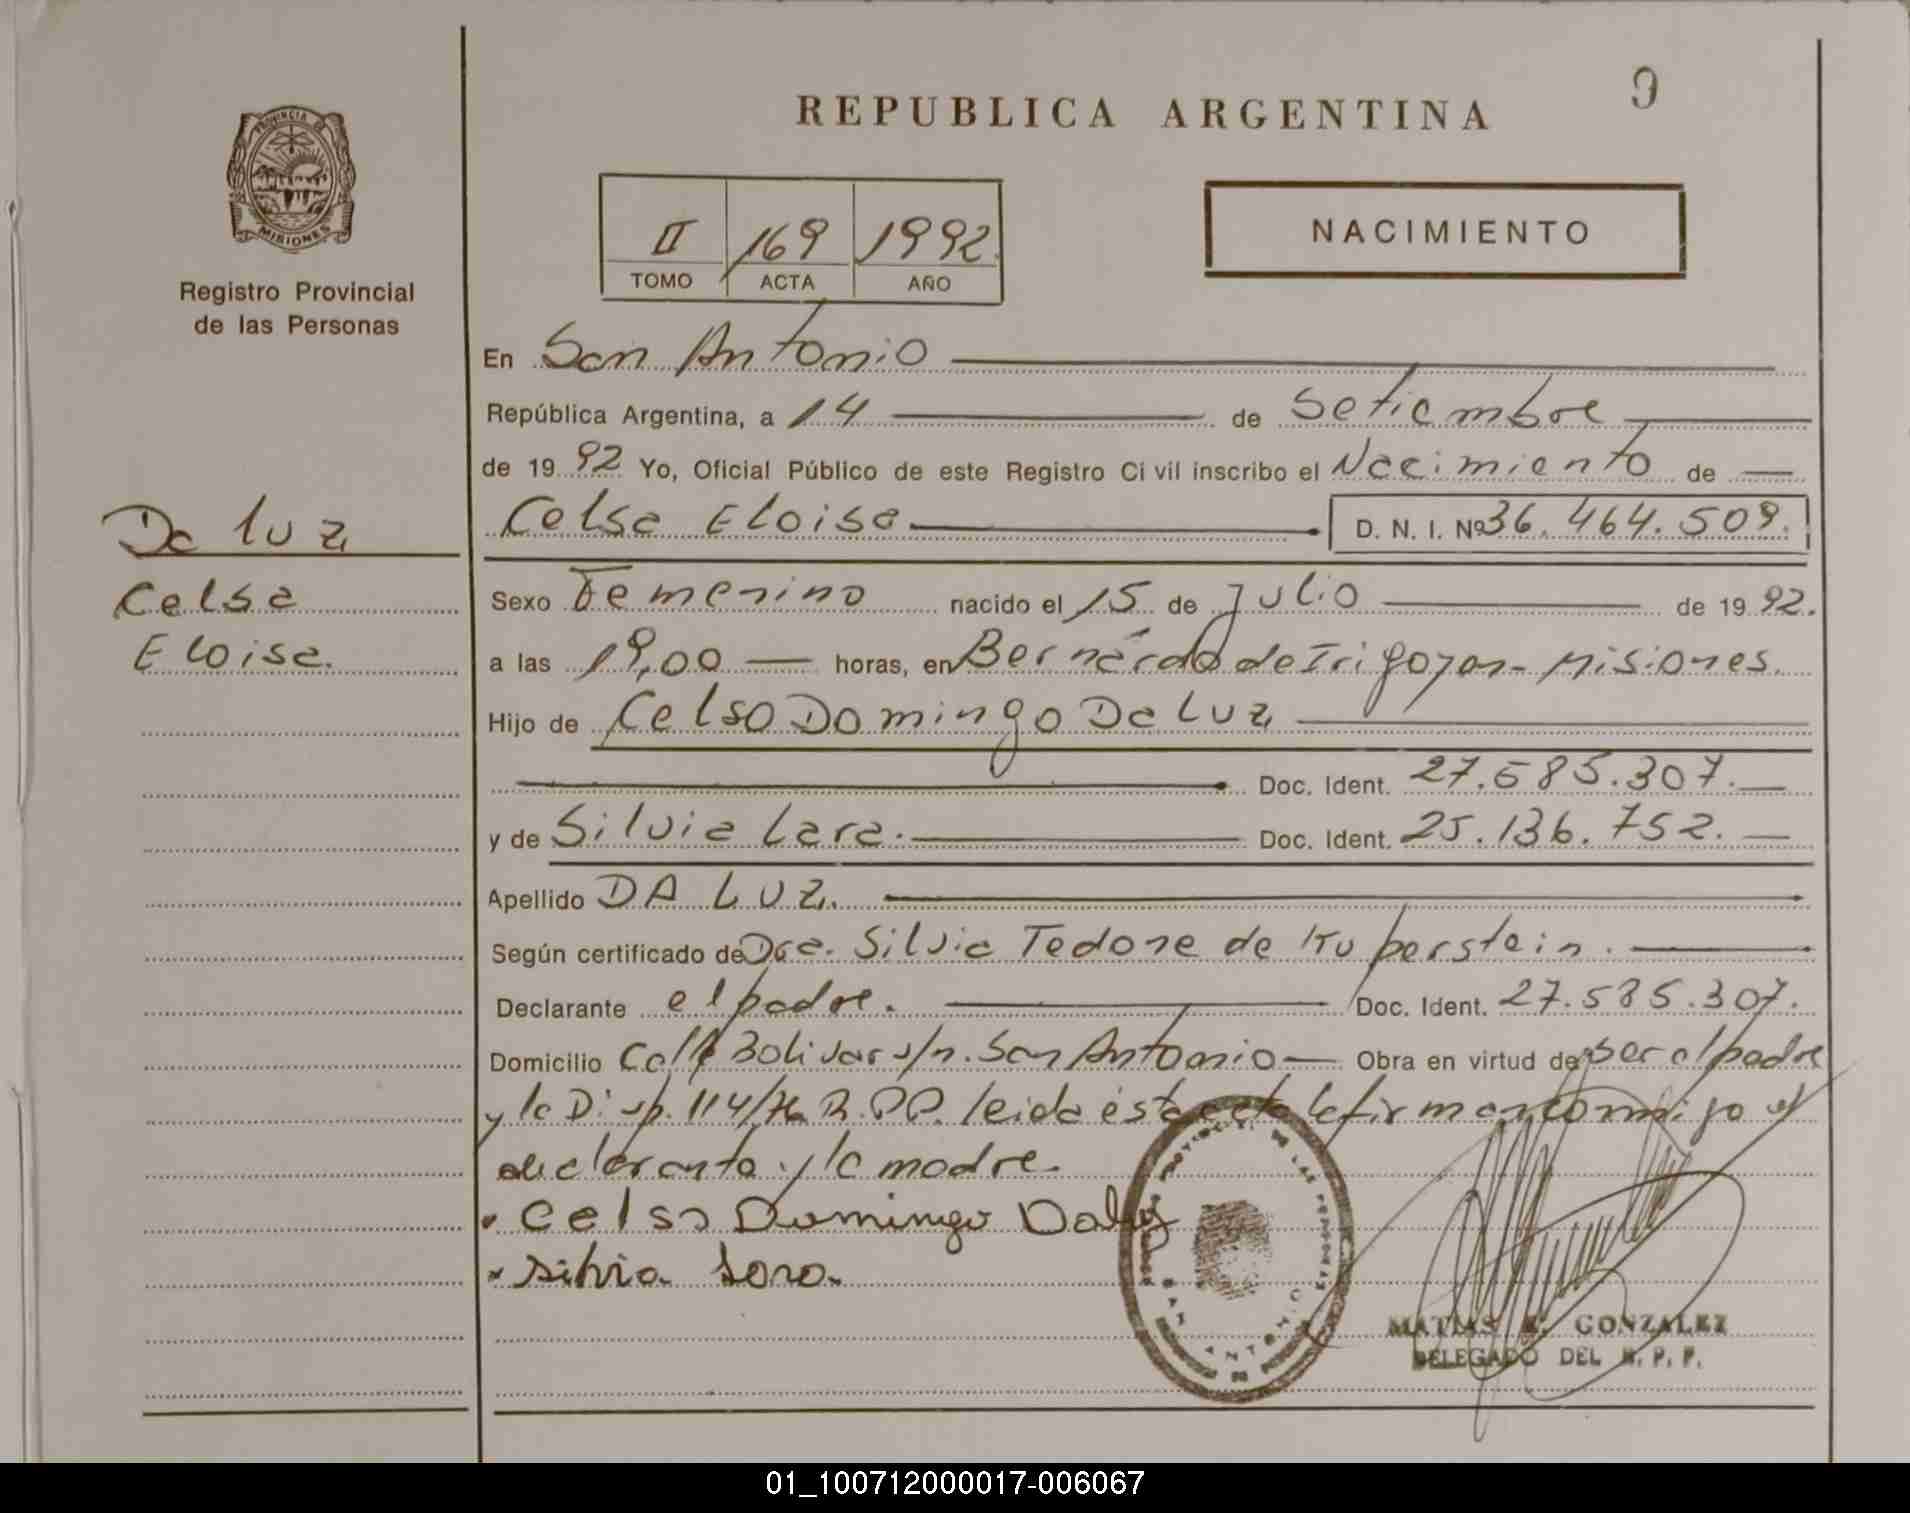 REPUBLICA ARGENTINA
9
PROVINCIA DE
MISIONES
Registro Provincial
de las Personas
II 169 1992
TOMO ACTA AÑO
NACIMIENTO
En San Antonio
República Argentina, a 14 de Setiembre
de 19 92 Yo, Oficial Público de este Registro Civil inscribo el Nacimiento de
Celsa Eloisa D. N. I. Nº 36.464.509.
Da luz
Celsa
Eloisa.
Sexo Femenino nacido el 15 de Julio de 19 92.
a las 19,00 horas, en Bernardo de Irigoyen - Misiones.
Hijo de Celso Domingo Da Luz
Doc. Ident. 27.585.307.
y de Silvia Lara. Doc. Ident. 25.136.752.
Apellido DA LUZ.
Según certificado de Dra. Silvia Tedone de Kuperstein.
Declarante el padre. Doc. Ident. 27.585.307.
Domicilio Calle Bolivar s/n. San Antonio Obra en virtud de ser el padre
y la Disp. 114/76 R.P.P. leida ésta acta la firman conmigo el
declarante y la madre.
Celso Domingo Daluz
Silvia Lara.
SAN ANTONIO
MATIAS GONZALEZ
DELEGADO DEL R. P. P.
01_100712000017-006067